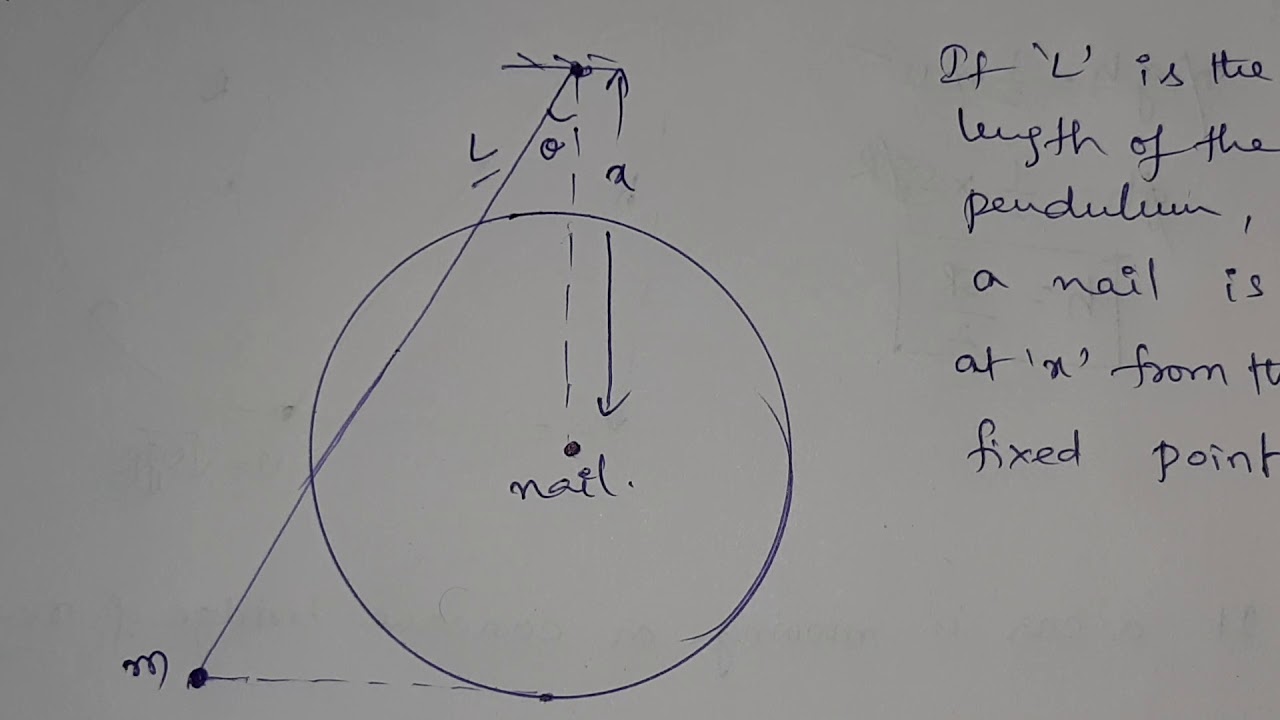 If 'L' is the
length of the
pendulum,
a nail is
at 'x' from
fixed point
L
θ
x
nail.
m